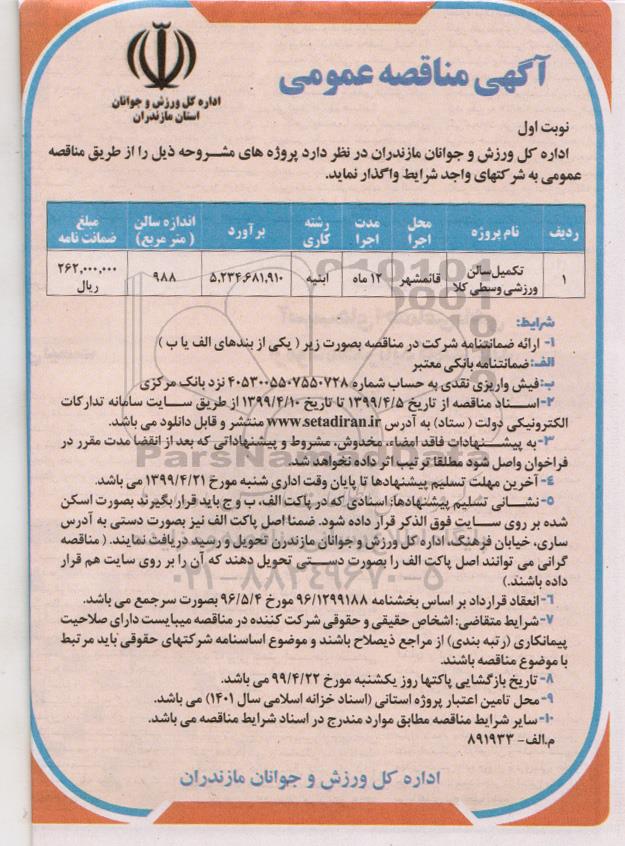 آگهی مناقصه عمومی
اداره کل ورزش و جوانان
استان مازندران
نوبت اول
اداره کل ورزش و جوانان مازندران در نظر دارد پروژه های مشروحه ذیل را از طریق مناقصه
عمومی به شرکتهای واجد شرایط واگذار نماید.
ردیف نام پروژه محل اجرا مدت اجرا رشته کاری برآورد اندازه سالن (متر مربع) مبلغ ضمانت نامه
۱ تکمیل سالن ورزشی وسطی کلا قائمشهر ۱۲ ماه ابنیه ۵,۲۳۴,۶۸۱,۹۱۰ ۹۸۸ ۲۶۲,۰۰۰,۰۰۰ ریال
شرایط:
۱- ارائه ضمانتنامه شرکت در مناقصه بصورت زیر ( یکی از بندهای الف یا ب )
الف: ضمانتنامه بانکی معتبر
ب: فیش واریزی نقدی به حساب شماره ۴۰۵۳۰۰۵۵۰۷۵۵۰۷۲۸ نزد بانک مرکزی
۲- اسناد مناقصه از تاریخ ۱۳۹۹/۴/۵ تا تاریخ ۱۳۹۹/۴/۱۰ از طریق سایت سامانه تدارکات
الکترونیکی دولت ( ستاد) به آدرس www.setadiran.ir منتشر و قابل دانلود می باشد.
۳- به پیشنهادات فاقد امضاء، مخدوش، مشروط و پیشنهاداتی که بعد از انقضا مدت مقرر در
فراخوان واصل شود مطلقا ترتیب اثر داده نخواهد شد.
۴- آخرین مهلت تسلیم پیشنهادها تا پایان وقت اداری شنبه مورخ ۱۳۹۹/۴/۲۱ می باشد.
۵- نشانی تسلیم پیشنهادها: اسنادی که در پاکت الف، ب و ج باید قرار بگیرند بصورت اسکن
شده بر روی سایت فوق الذکر قرار داده شود. ضمنا اصل پاکت الف نیز بصورت دستی به آدرس
ساری، خیابان فرهنگ، اداره کل ورزش و جوانان مازندرن تحویل و رسید دریافت نمایند. ( مناقصه
گرانی می توانند اصل پاکت الف را بصورت دستی تحویل دهند که آن را بر روی سایت هم قرار
داده باشند.)
۶- انعقاد قرارداد بر اساس بخشنامه ۹۶/۱۲۹۹۱۸۸ مورخ ۹۶/۵/۴ بصورت سرجمع می باشد.
۷- شرایط متقاضی: اشخاص حقیقی و حقوقی شرکت کننده در مناقصه میبایست دارای صلاحیت
پیمانکاری (رتبه بندی) از مراجع ذیصلاح باشند و موضوع اساسنامه شرکتهای حقوقی باید مرتبط
با موضوع مناقصه باشند.
۸- تاریخ بازگشایی پاکتها روز یکشنبه مورخ ۹۹/۴/۲۲ می باشد.
۹- محل تامین اعتبار پروژه استانی (اسناد خزانه اسلامی سال ۱۴۰۱) می باشد.
۱۰- سایر شرایط مناقصه مطابق موارد مندرج در اسناد شرایط مناقصه می باشد.
م.الف- ۸۹۱۹۳۳
اداره کل ورزش و جوانان مازندران
ParsNamadData
۰۲۱-۸۸۳۴۹۶۷۰-۵